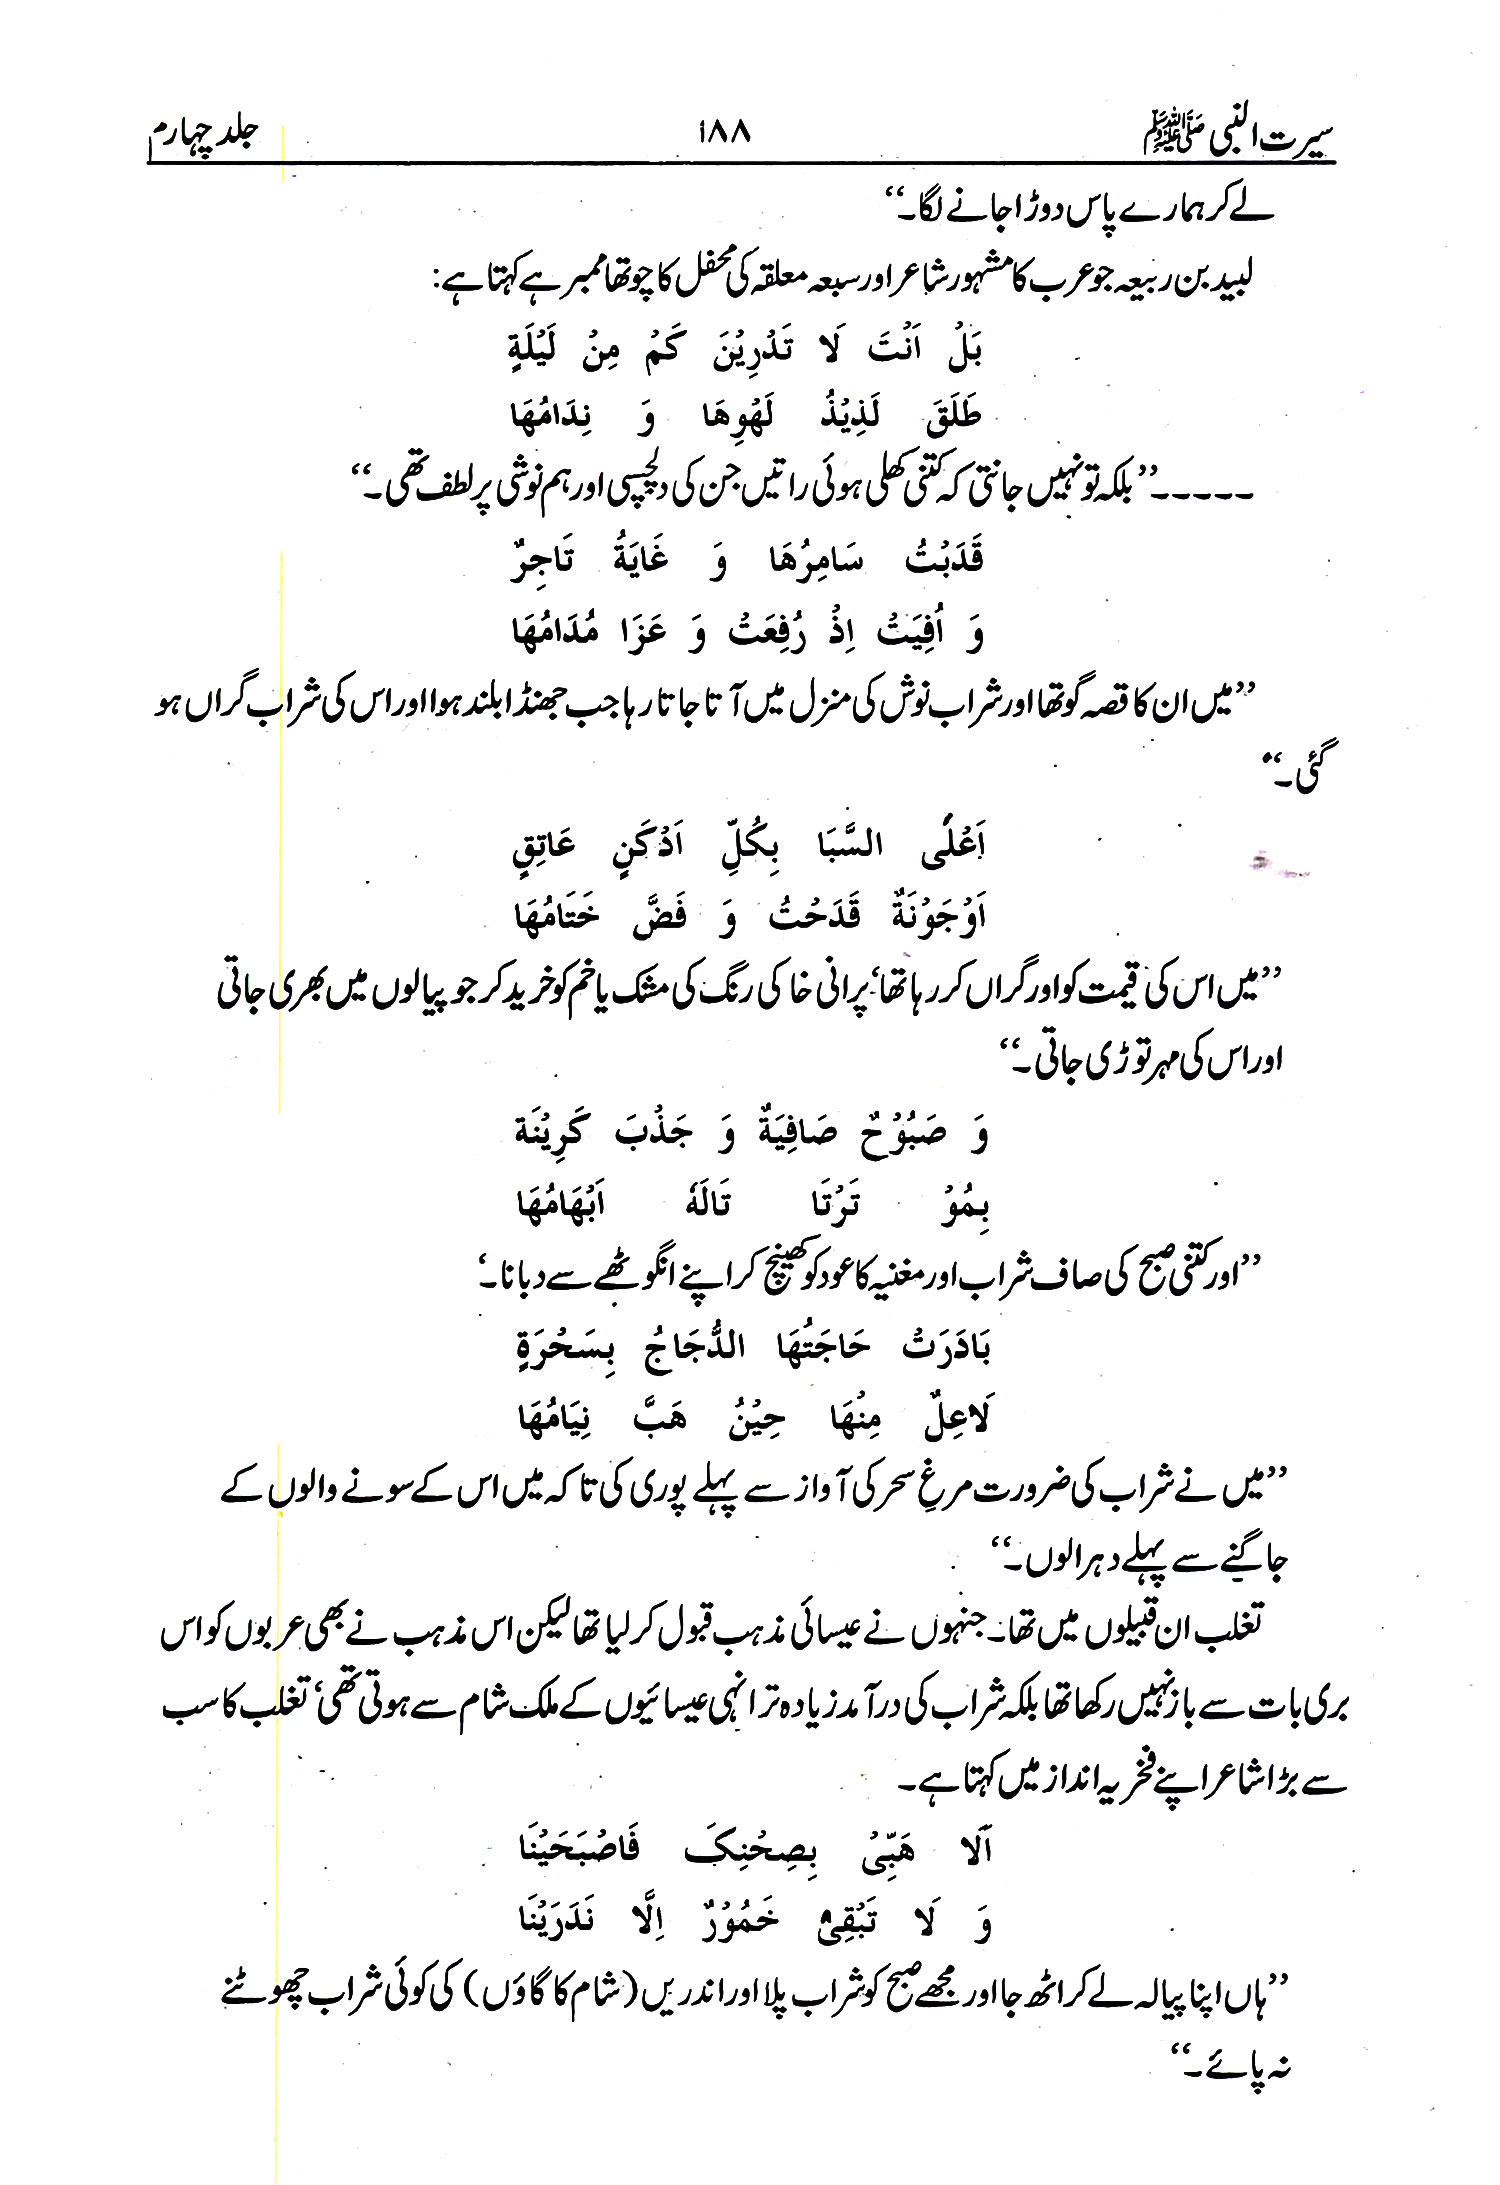 سیرت النبی ﷺ ۱۸۸ جلد چہارم
لے کر ہمارے پاس دوڑا جانے لگا۔“
لبید بن ربیعہ جو عرب کا مشہور شاعر اور سبعہ معلقہ کی محفل کا چوتھا ممبر ہے کہتا ہے:
بَلْ اَنْتَ لَا تَدْرِیْنَ کَمْ مِنْ لَیْلَةٍ
طَلَقَ لَذِیْذُ لَهْوِهَا وَ نِدَامُهَا
۔۔۔۔۔”بلکہ تو نہیں جانتی کہ کتنی کھلی ہوئی راتیں جن کی دلچسپی اور ہم نوشی پر لطف تھی۔“
قَدَبْتُ سَامِرُهَا وَ غَایَةُ تَاجِرٌ
وَ اُفِیَتْ اِذْ رُفِعَتْ وَ عَزَا مُدَامُهَا
”میں ان کا قصہ گو تھا اور شراب نوش کی منزل میں آتا جاتا رہا جب جھنڈا بلند ہوا اور اس کی شراب گراں ہو
گئی۔“
اَغْلٰی السَّبَا بِکُلِّ اَدْکَنٍ عَاتِقٍ
اَوْجَوْنَةٌ قَدَحْتُ وَ فَضَّ خَتَامُهَا
”میں اس کی قیمت کو اور گراں کر رہا تھا‘ پرانی خاکی رنگ کی مشک یا خم کو خرید کر جو پیالوں میں بھری جاتی
اور اس کی مہر توڑی جاتی۔“
وَ صَبُوْحٌ صَافِیَةٌ وَ جَذْبَ کَرِیْنَة
بِمُوْ تَرْتَا تَالَهٗ اَبْهَامُهَا
”اور کتنی صبح کی صاف شراب اور مغنیہ کا عود کو کھینچ کر اپنے انگوٹھے سے دبانا۔‘
بَادَرَتْ حَاجَتُهَا الدُّجَاجُ بِسَحْرَةٍ
لَاعِلٌ مِنْهَا حِیْنُ هَبَّ نِیَامُهَا
”میں نے شراب کی ضرورت مرغِ سحر کی آواز سے پہلے پوری کی تا کہ میں اس کے سونے والوں کے
جاگنے سے پہلے دہرالوں۔“
تغلب ان قبیلوں میں تھا۔ جنہوں نے عیسائی مذہب قبول کر لیا تھا لیکن اس مذہب نے بھی عربوں کو اس
بری بات سے باز نہیں رکھا تھا بلکہ شراب کی درآمد زیادہ تر انہی عیسائیوں کے ملک شام سے ہوتی تھی‘ تغلب کا سب
سے بڑا شاعر اپنے فخریہ انداز میں کہتا ہے۔
اَلَا هَبِّیْ بِصِحْنِکَ فَاصْبَحَیْنَا
وَ لَا تَبْقِیْ خَمُوْرٌ اِلَّا نَدَرَیْنَا
”ہاں اپنا پیالہ لے کر اٹھ جا اور مجھے صبح کو شراب پلا اور اندریں (شام کا گاؤں) کی کوئی شراب چھوٹنے
نہ پائے۔“